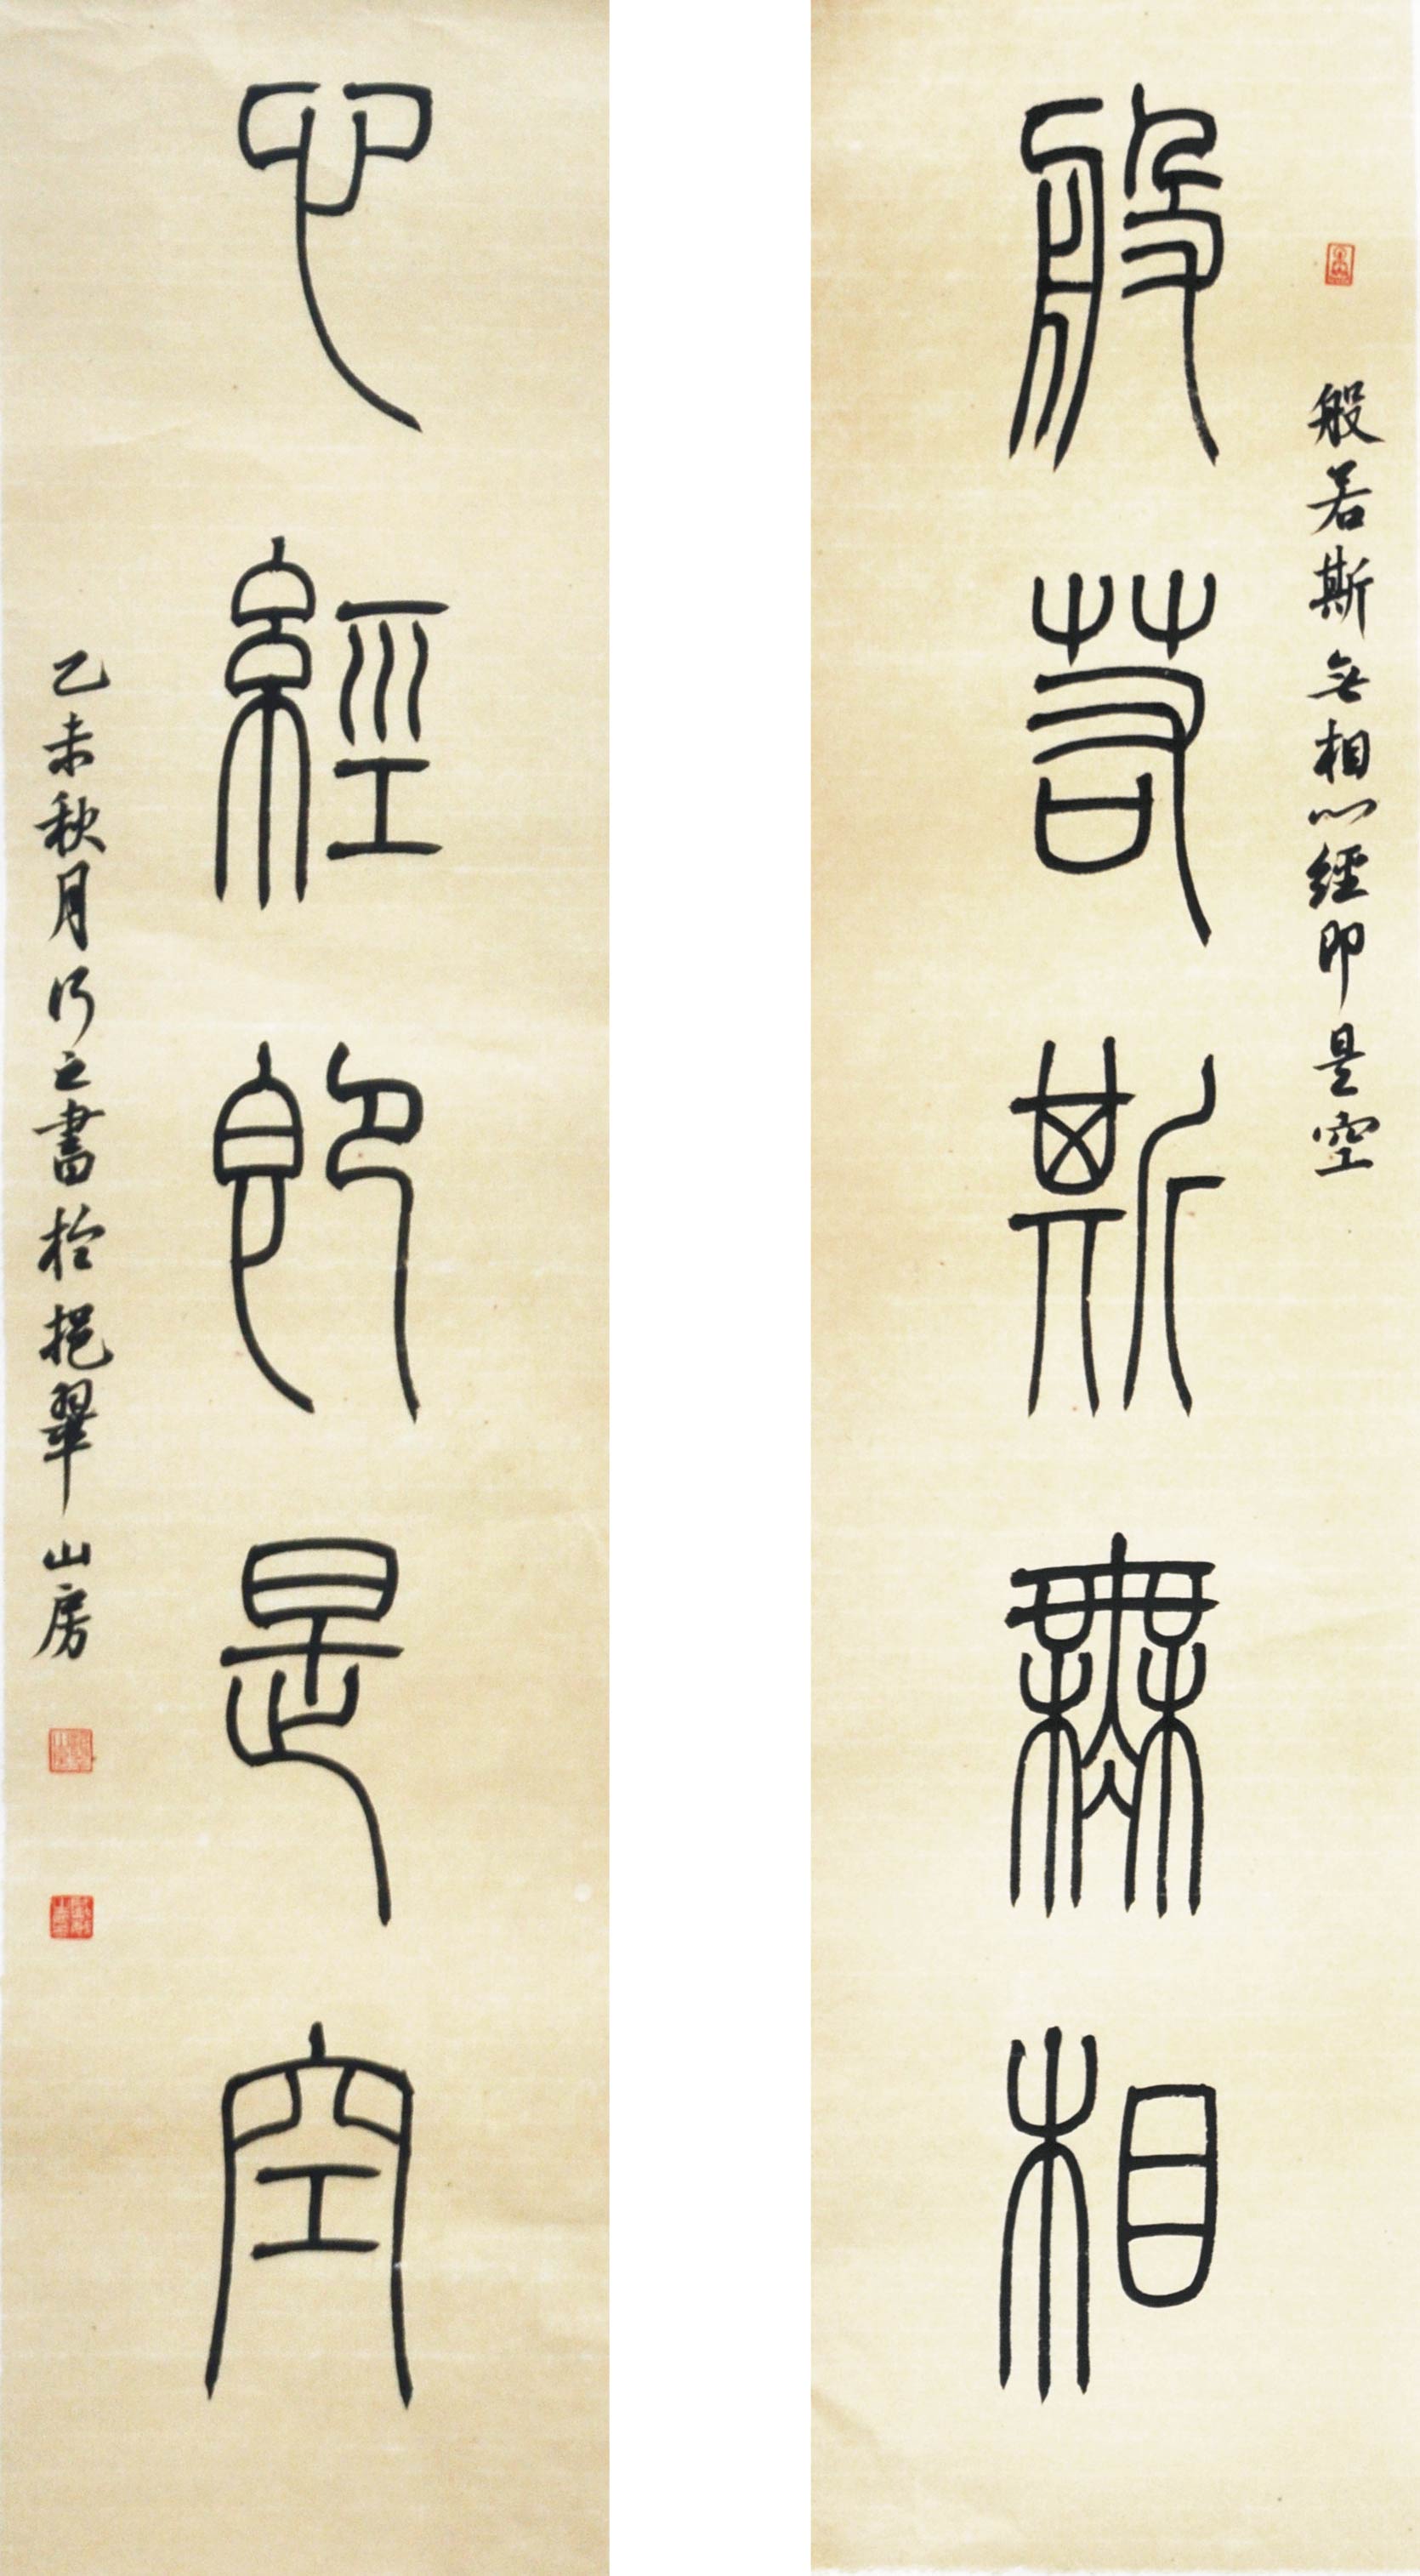 般若斯無相心經即是空
般若斯無相
心經即是空
乙未秋月行之書於挹翠山房